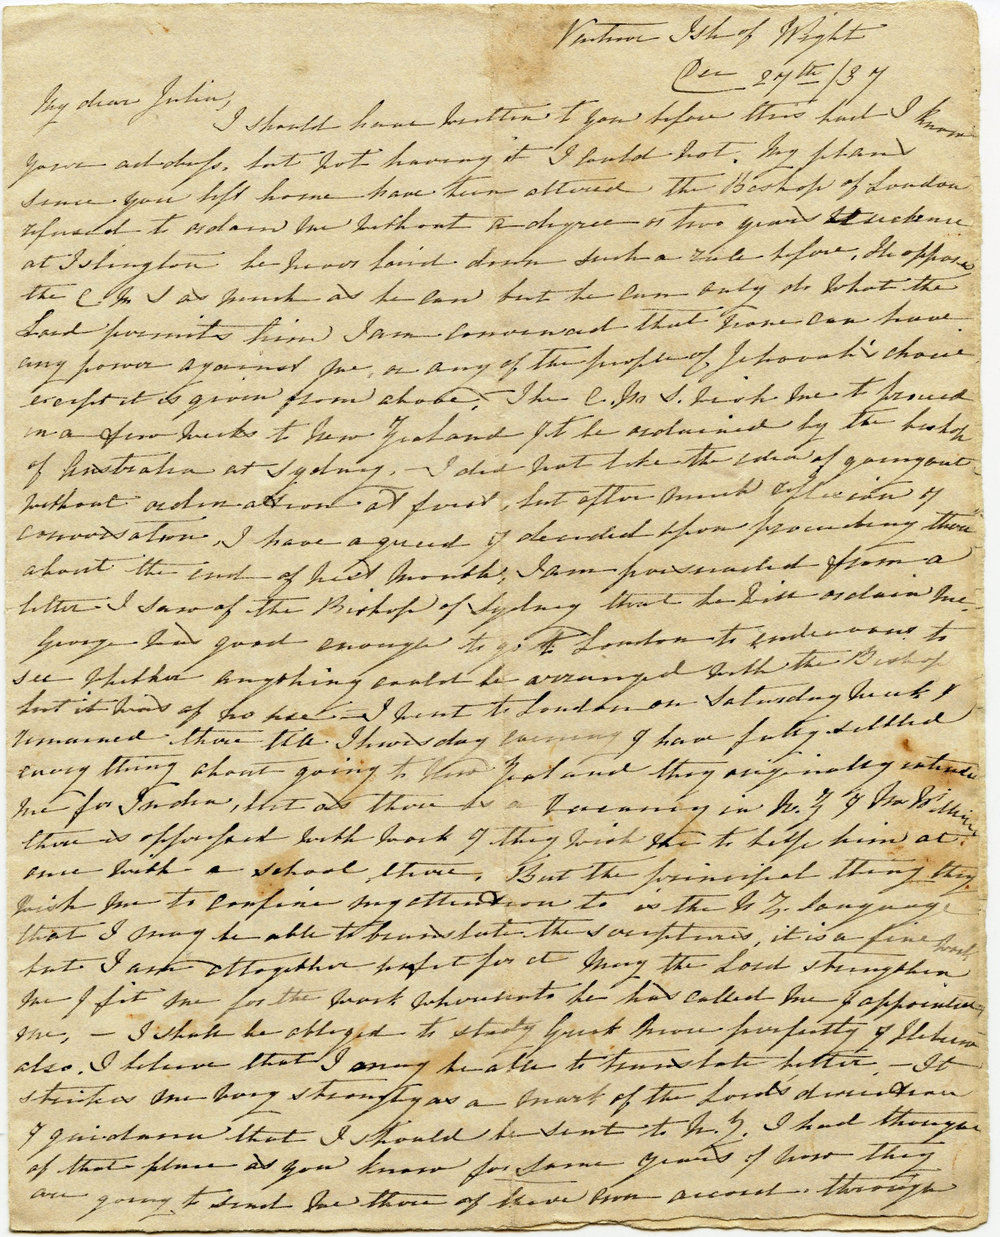 Ventnor Isle of Wight
Dec 27th /37
My dear Julia,
I should have written to you before this had I known
your address, but not having it I could not. My plans
since you left home have been altered the Bishop of London
refused to ordain me without a degree or two years residence
at Islington he never laid down such a rule before, He opposes
the C M S as much as he can but he can only do what the
Lord permits him I am convinced that none can have
any power against me, or any of the people of Jehovah's choice
except it is given from above, The C. M. S. wish me to proceed
in a few weeks to New Zealand & to be ordained by the bishop
of Australia at Sydney, - I did not like the idea of going out
without ordination at first, but after much reflexion &
conversation, I have agreed & decided upon proceeding there
about the end of next month, I am persuaded from a
letter I saw of the Bishop of Sydney that he will ordain me.
George was good enough to go to London to endeavour to
see whether anything could be arranged with the Bishop
but it was of no use - I went to London on Saturday week &
remained there till Thursday evening & have fully settled
every thing about going to New Zealand they originally intended
me for India, but as there is a vacancy in N. Z & Mr Williams
there is oppressed with work & they wish me to help him at
once with a school there, But the principal thing they
wish me to confine my attention to is the N Z. language
that I may be able to translate the scriptures, it is a fine work
but I am altogether unfit for it May the Lord strengthen
me & fit me for the work whereunto he has called me & appointed
me, - I shall be obliged to study Greek more perfectly & Hebrew
also, I believe that I may be able to translate better - It
strikes me very strongly as a mark of the Lord's direction
& guidance that I should be sent to N. Z. I had thought
of that place as you know for some years & now they
are going to send me there of their own accord. through